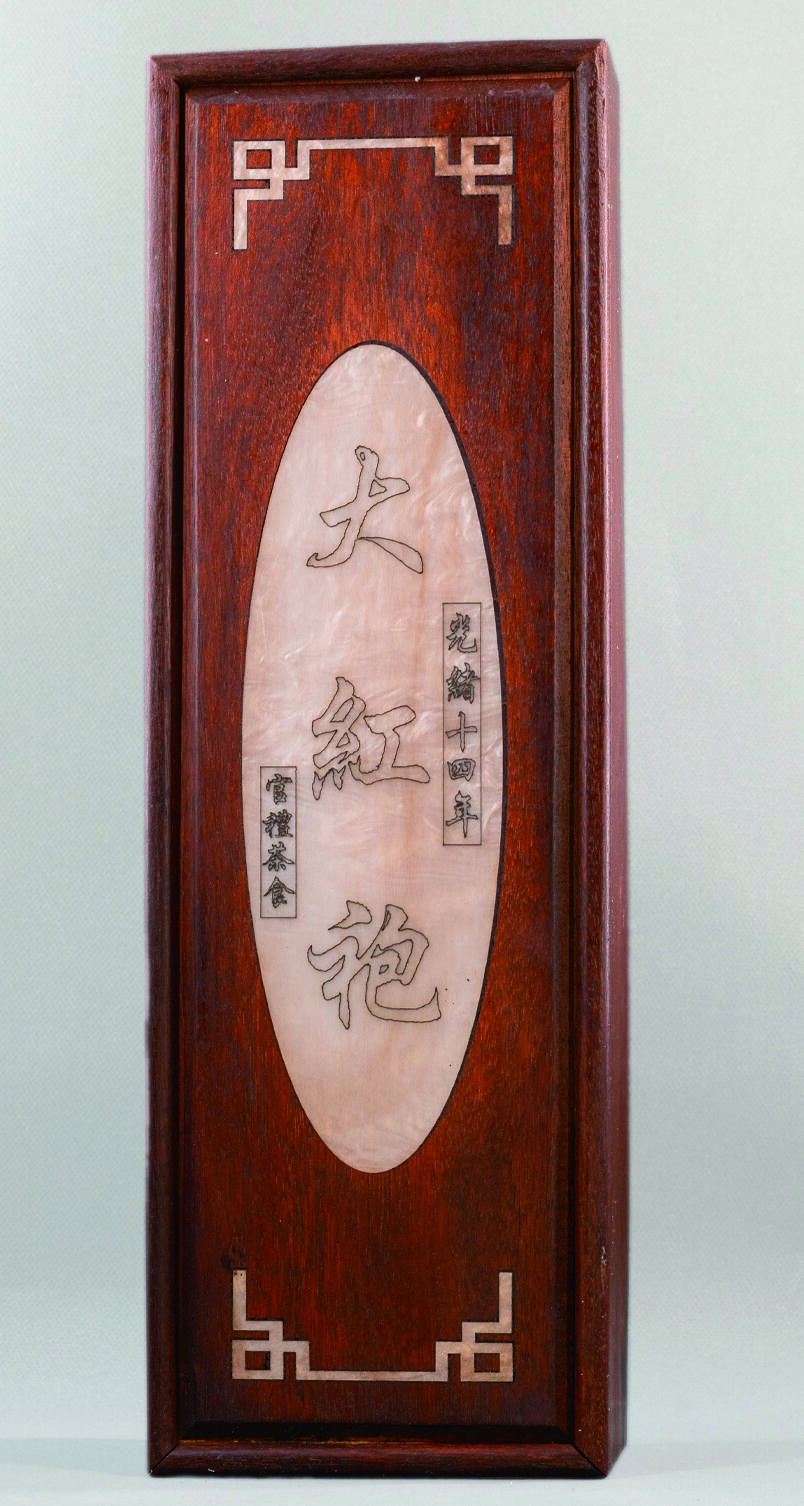 光緒十四年
大紅袍
官禮茶食